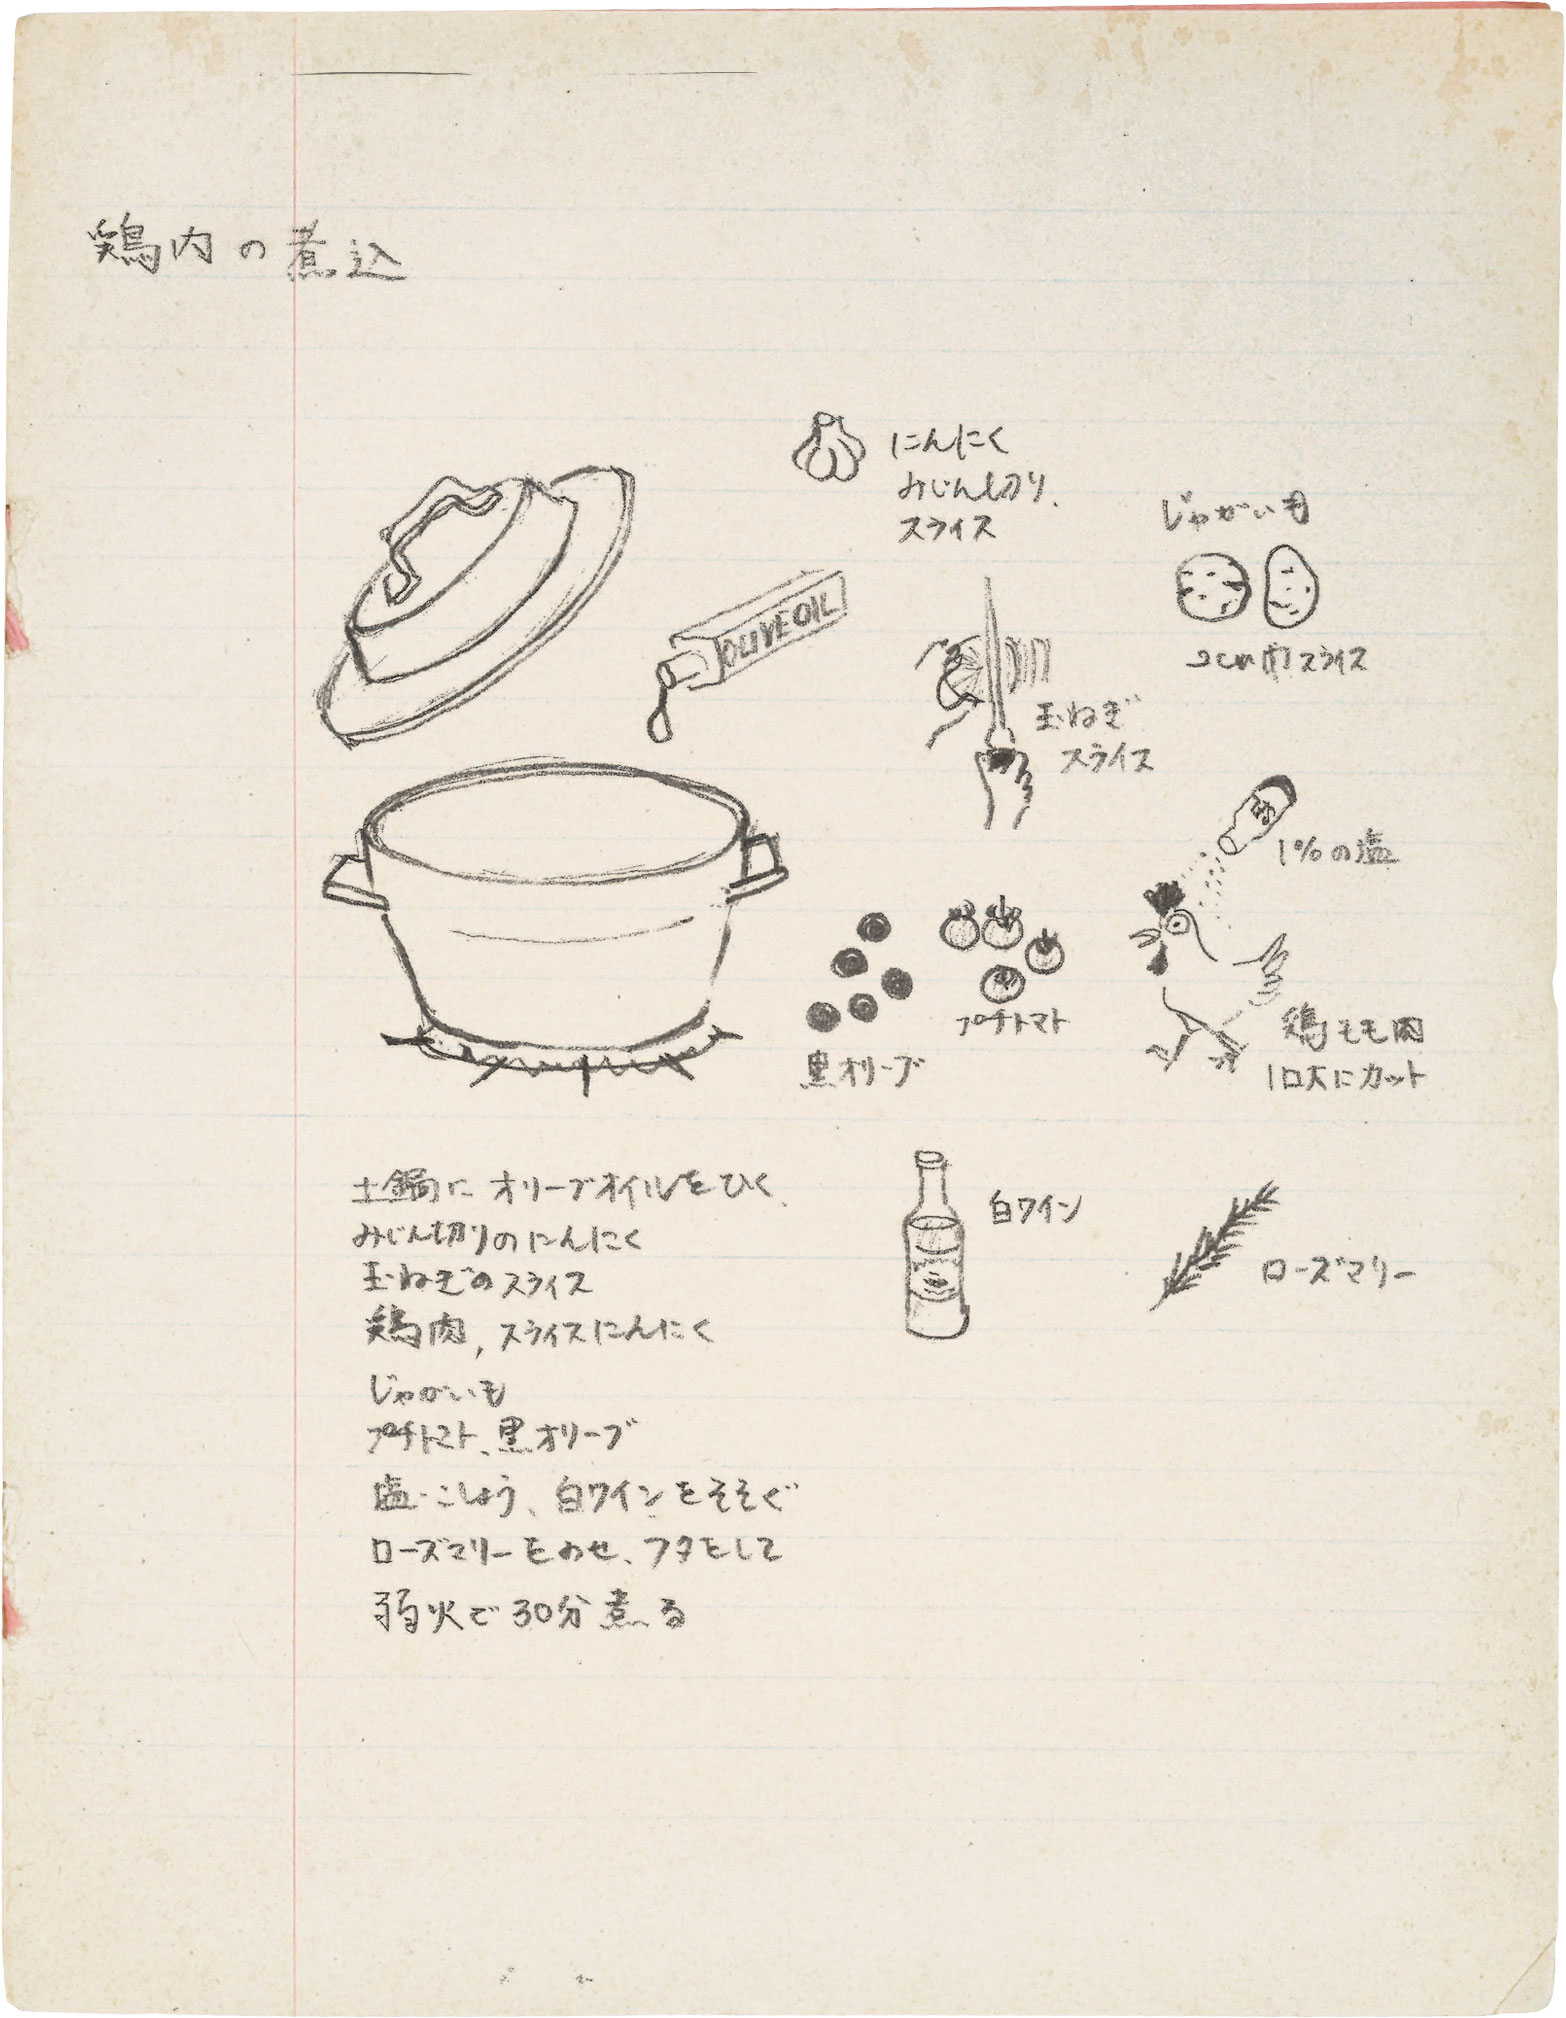 鶏肉の煮込
にんにく
みじん切り、
スライス
じゃがいも
2cm巾スライス
OLIVE OIL
玉ねぎ
スライス
1%の塩
プチトマト
黒オリーブ
鶏もも肉
1口大にカット
白ワイン
ローズマリー
土鍋にオリーブオイルをひく、
みじん切りのにんにく
玉ねぎのスライス
鶏肉,スライスにんにく
じゃがいも
プチトマト、黒オリーブ
塩・こしょう、白ワインをそそぐ
ローズマリーをのせ、フタをして
弱火で30分煮る